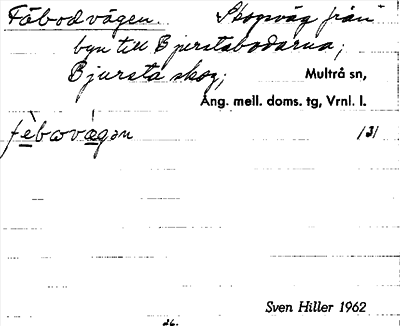 Fäbodvägen. Skogsväg från
byn till Bjurstabodarna;
Bjursta skog; Multrå sn,
Ång. mell. doms. tg, Vrnl. l.
fèbωvägən 131
Sven Hiller 1962